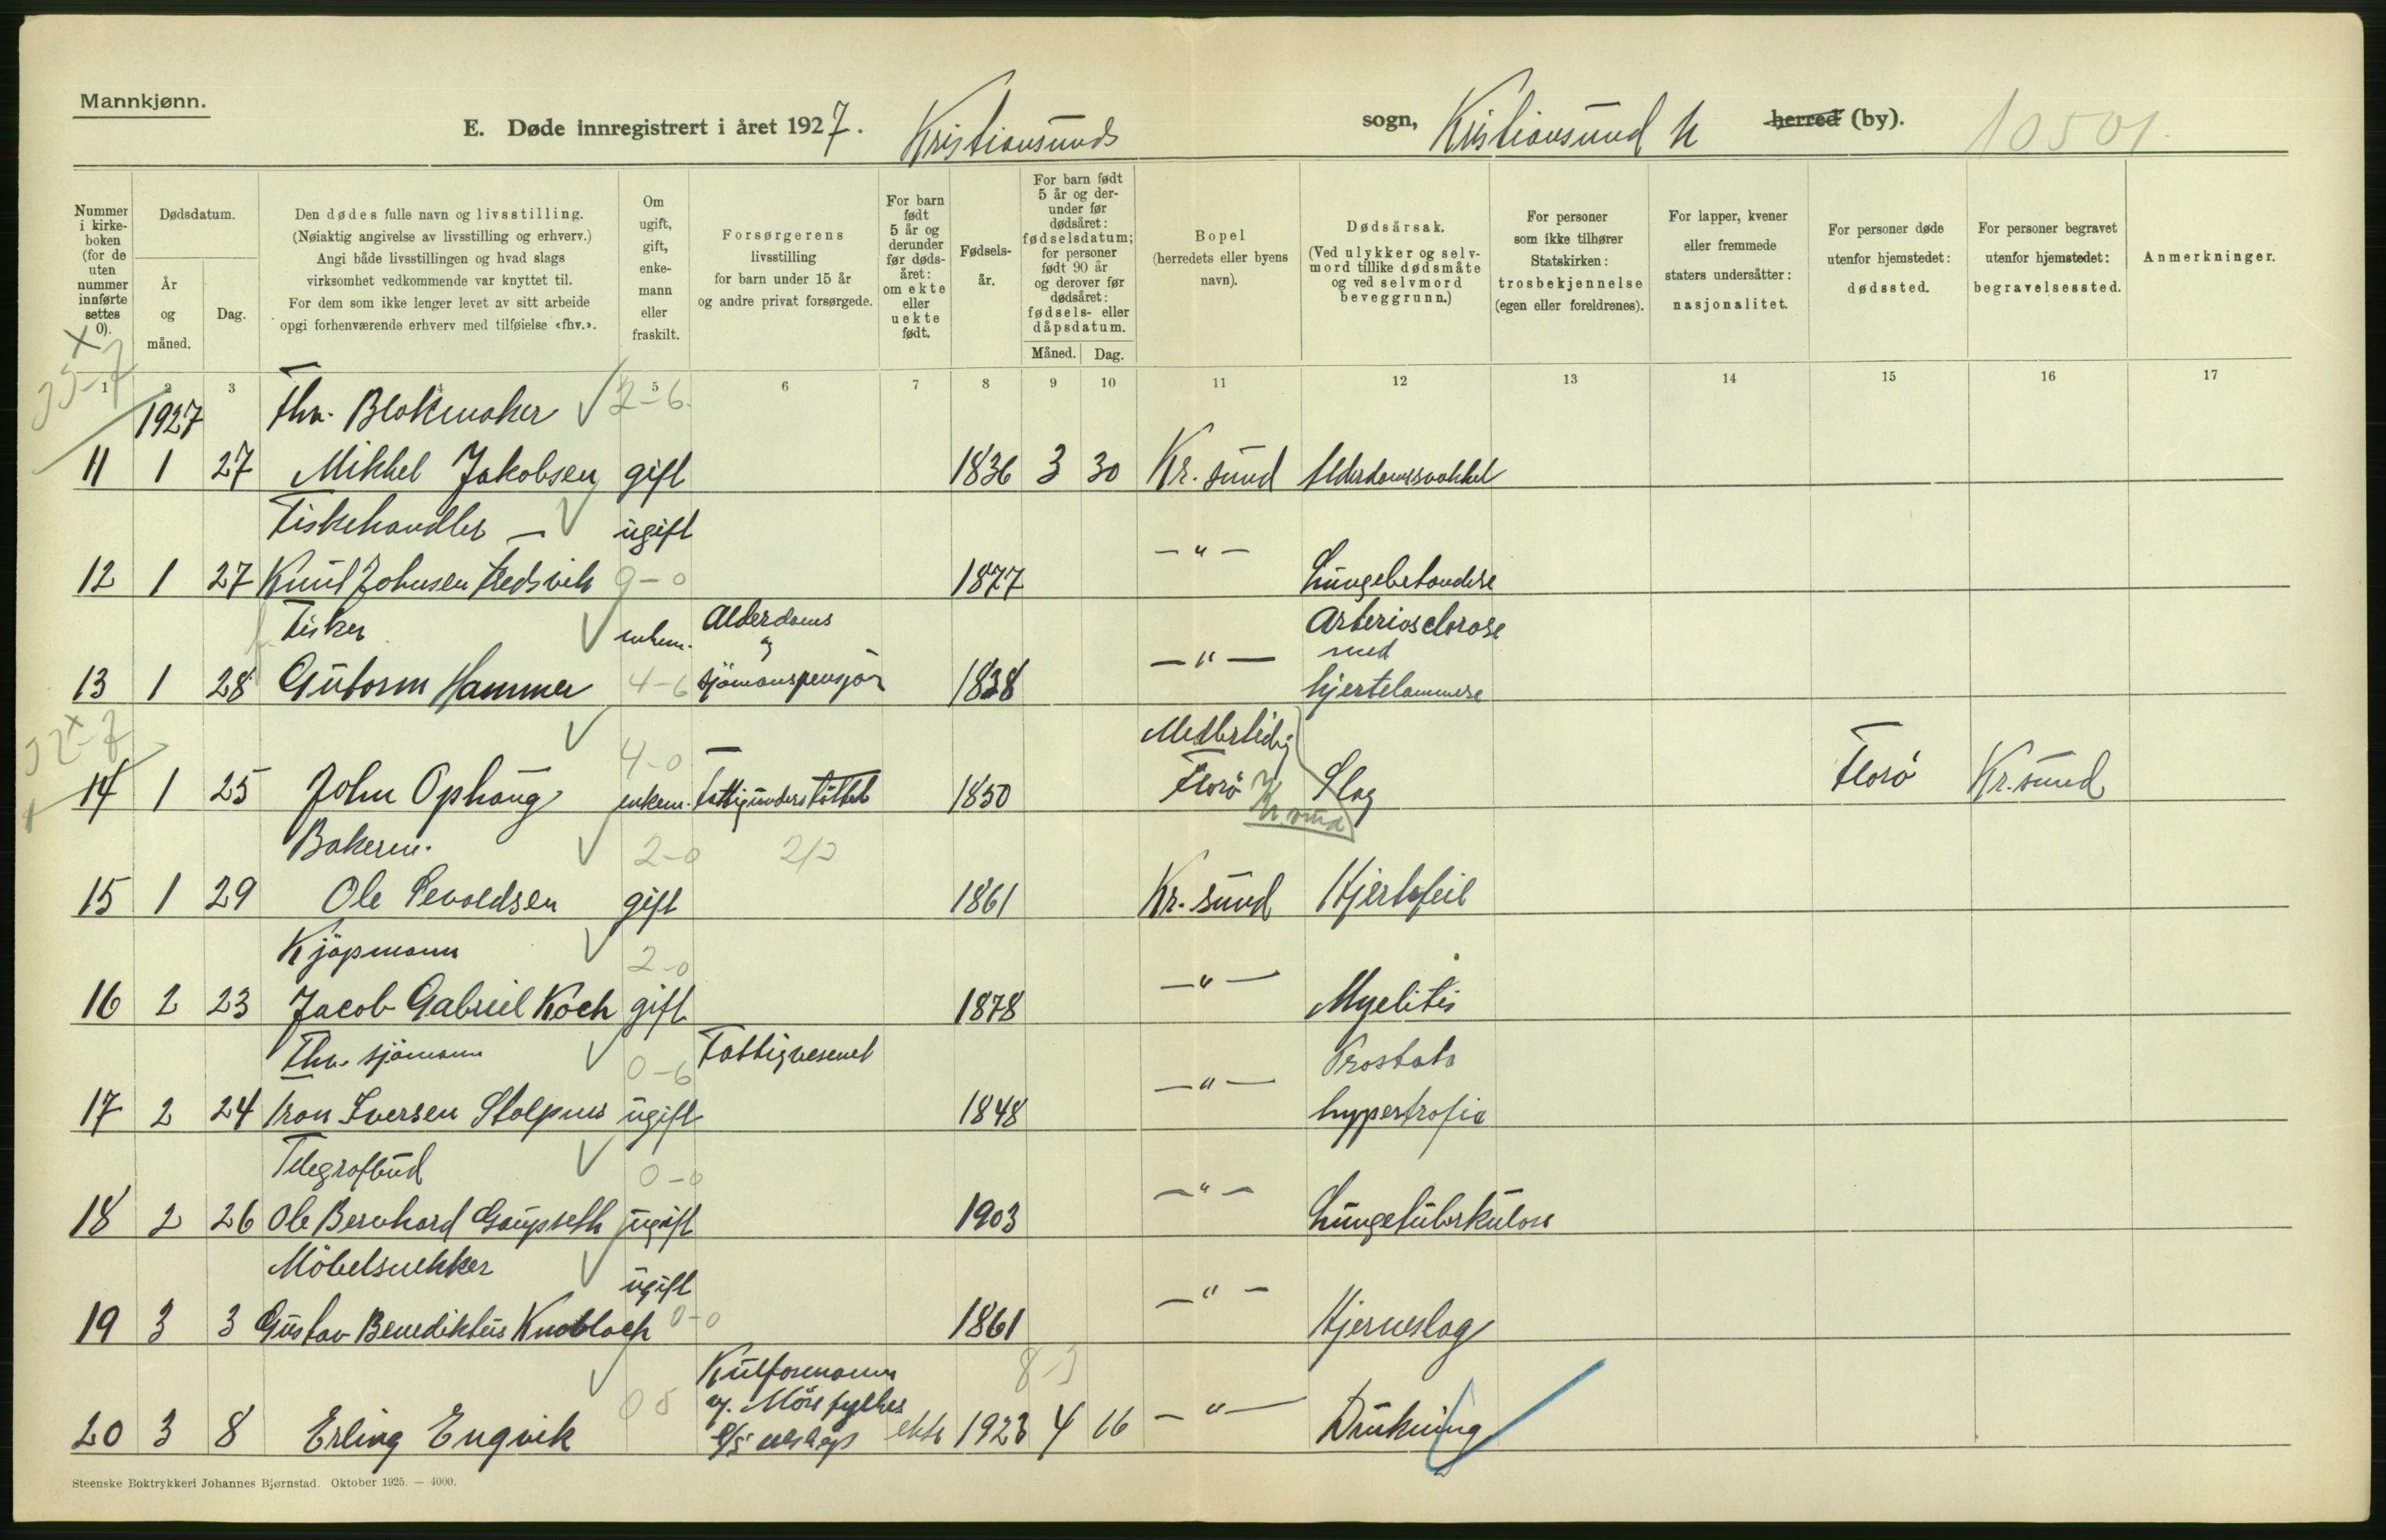 Mannkjønn.
E. Døde innregistrert i året 1927. Kristiansunds sogn, Kristiansund N herred (by). 10501.
Nummer i kirke-boken (for de uten nummer innførte settes 0).
Dødsdatum.
År og måned.
Dag.
Den dødes fulle navn og livsstilling.
(Nøiaktig angivelse av livsstilling og erhverv.)
Angi både livsstillingen og hvad slags
virksomhet vedkommende var knyttet til.
For dem som ikke lenger levet av sitt arbeide
opgi forhenværende erhverv med tilføielse «fhv.».
Om ugift, gift, enke-mann eller fraskilt.
Forsørgerens
livsstilling
for barn under 15 år
og andre privat forsørgede.
For barn født 5 år og derunder før døds-året: om ekte eller uekte født.
Fødsels-år.
For barn født 5 år og der-under før dødsåret: fødselsdatum; for personer født 90 år og derover før dødsåret: fødsels- eller dåpsdatum.
Måned. Dag.
Bopel
(herredets eller byens
navn).
Dødsårsak.
(Ved ulykker og selv-
mord tillike dødsmåte
og ved selvmord
beveggrunn.)
For personer
som ikke tilhører
Statskirken:
trosbekjennelse
(egen eller foreldrenes).
For lapper, kvener
eller fremmede
staters undersåtter:
nasjonalitet.
For personer døde
utenfor hjemstedet:
dødssted.
For personer begravet
utenfor hjemstedet:
begravelsessted.
Anmerkninger.
1 2 3 4 5 6 7 8 9 10 11 12 13 14 15 16 17
1927 Fhv. Blokmaker 2-6.
11 1 27 Mikkel Jakobsen gift 1836 3 30 Kr.sund Alderdomssvakhet
Fiskehandler — ugift
12 1 27 Knut Johnsen Fredsvik 9-0 1877 —"— Lungebetendelse
Fisker enkem. Alderdoms og Arteriosclerose med
13 1 28 Gutorm Hammer 4-6 sjömanspensjon 1838 —"— hjertelammelse
4-0 Midlertidig
14 1 25 John Ophaug enkem. Fattigunderstöttet 1850 Florö Kr.sund Slag Florö Kr.sund
Bakerm. 2-0
15 1 29 Ole Sevaldsen gift 1861 Kr.sund Hjertefeil
Kjöpmann 2-0
16 2 23 Jacob Gabriel Koch gift 1878 —"— Myelitis
Fhv. sjömann 0-6 Fattigvesenet Prostata
17 2 24 Iver Iversen Stolpnes ugift 1848 —"— hypertrofia
Telegrafbud 0-0
18 2 26 Ole Bernhard Gaupseth ugift 1903 —"— Lungetuberkulose
Möbelsnekker ugift
19 3 3 Gustav Benediktus Knobloch 0-0 1861 —"— Hjerneslag
Kulformann
v. Möre fylkes
20 3 8 Erling Engvik 0 5 ekte 1923 4 16 —"— Drukning
Steenske Boktrykkeri Johannes Bjørnstad. Oktober 1925. — 4000.